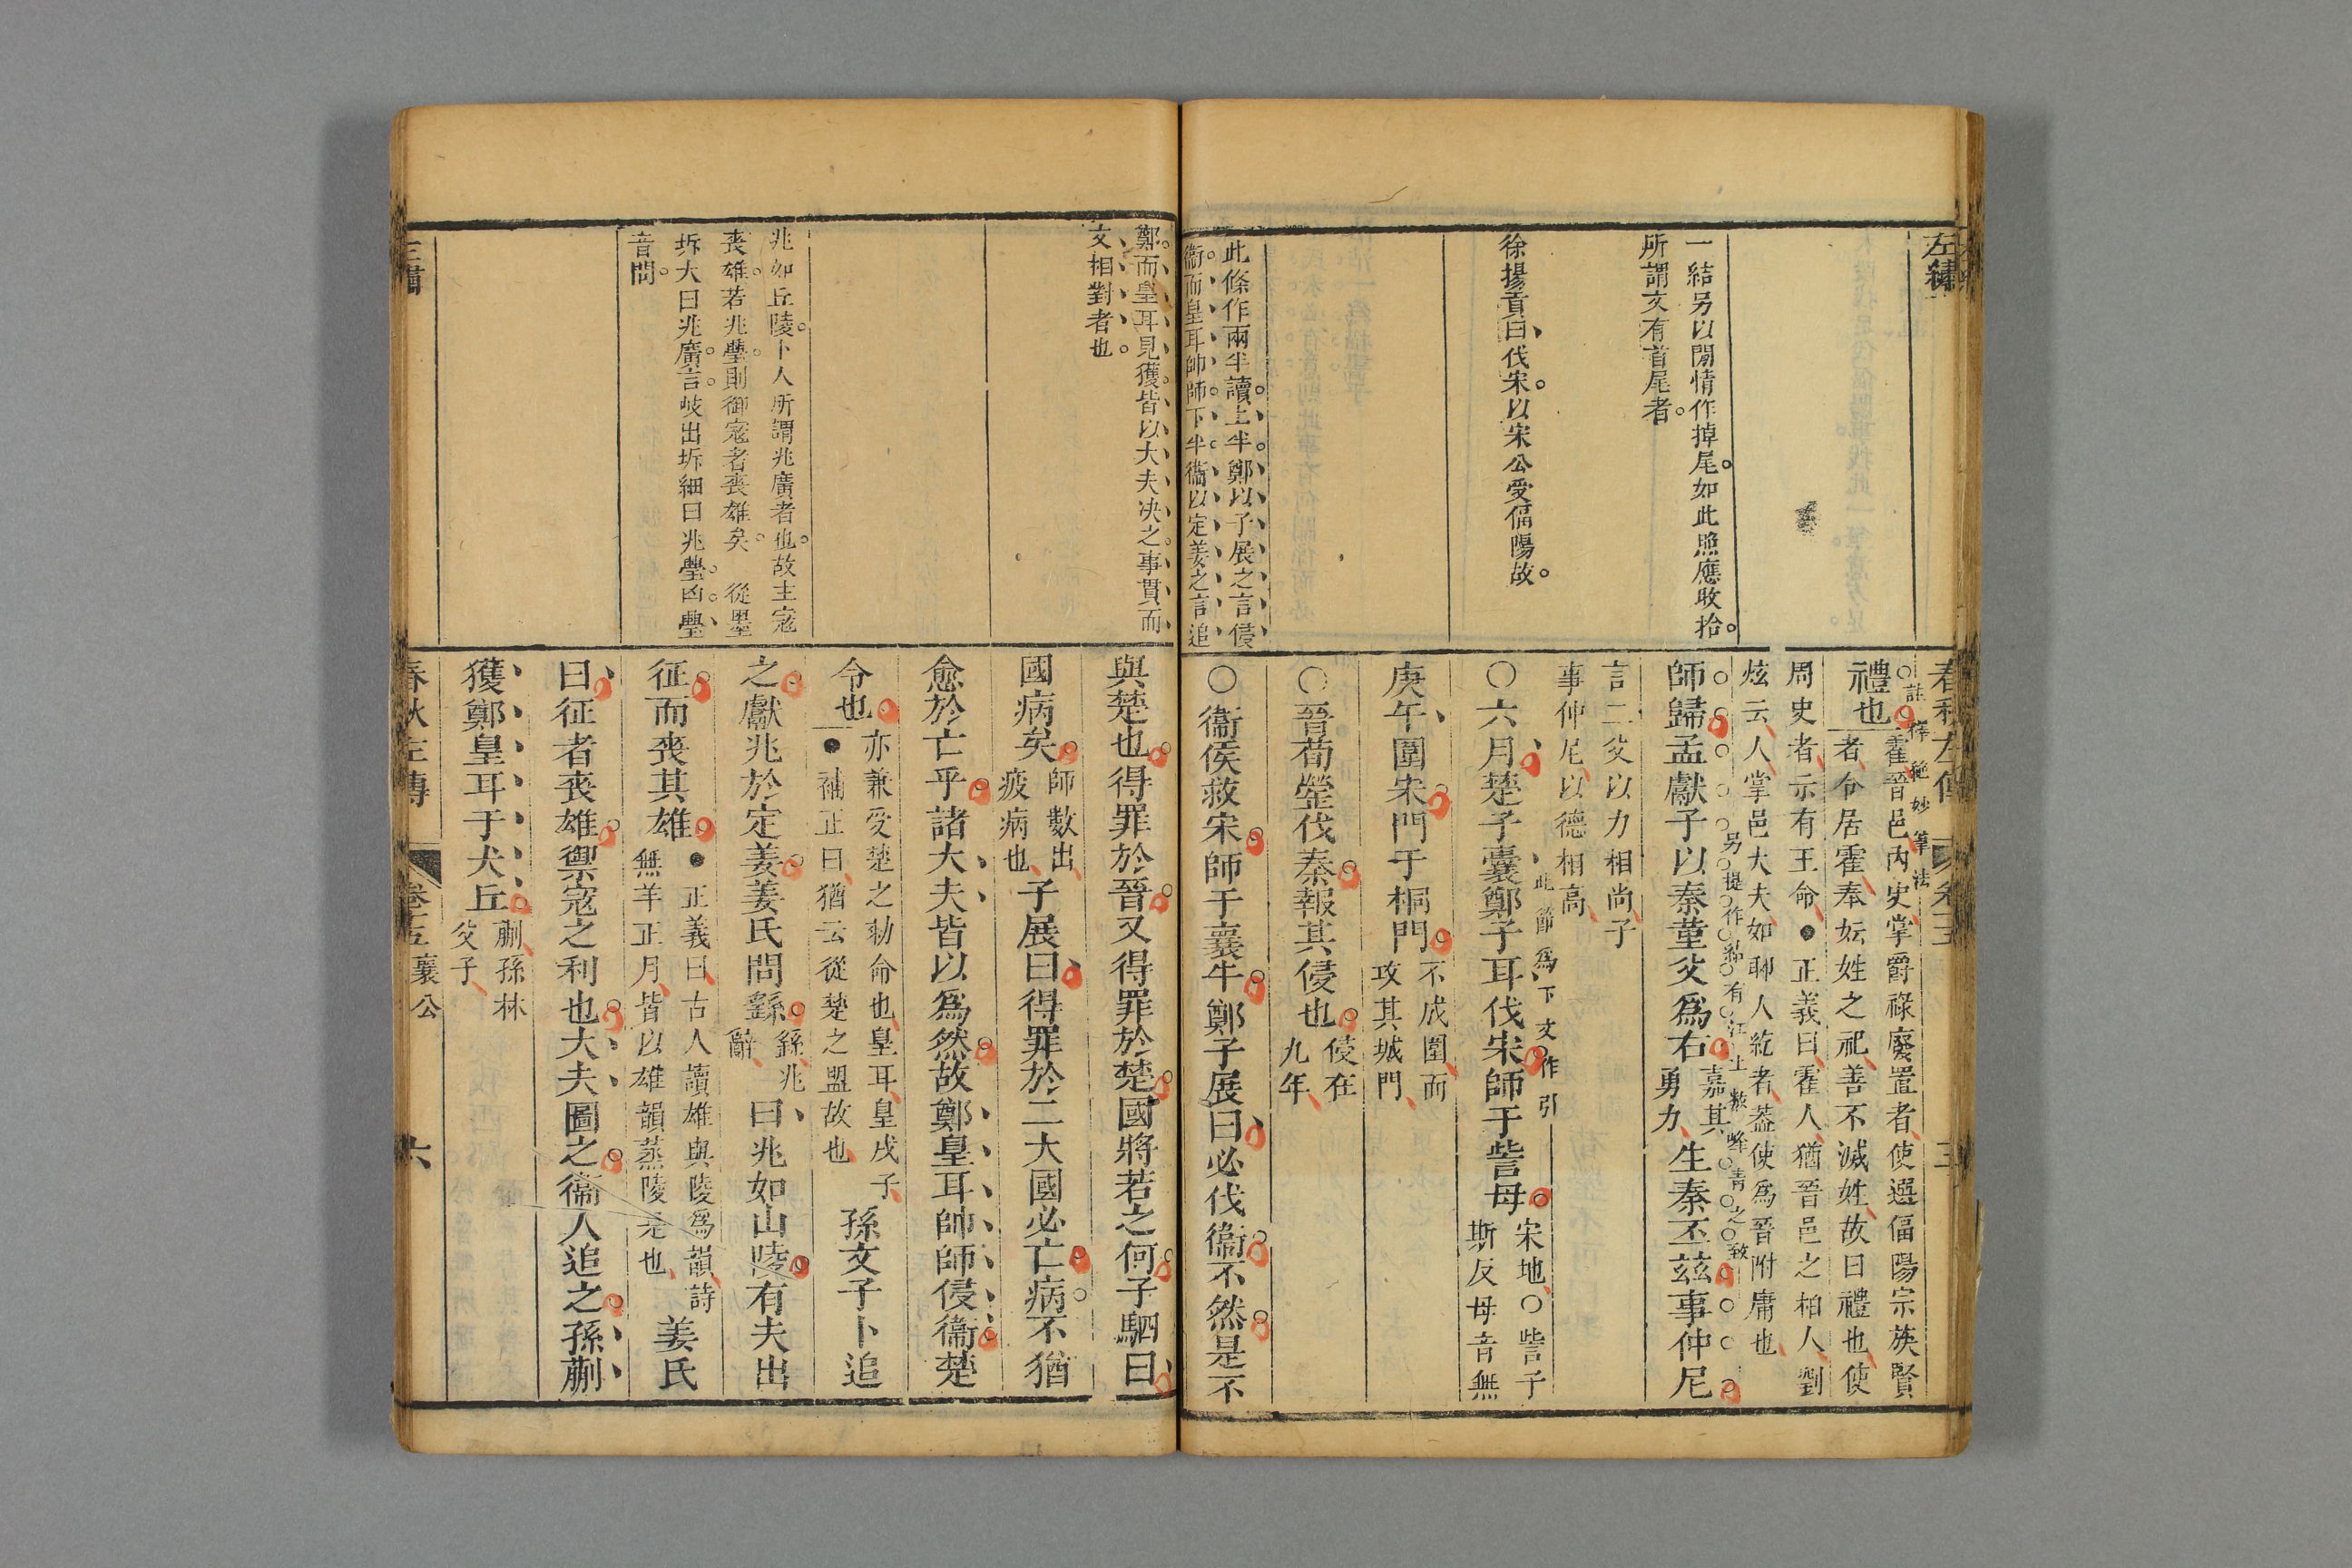 左繡
一結另以閒情作掉尾如此照應收拾
所謂文有首尾者
徐揚貢曰伐宋以宋公受偪陽故
此條作兩半讀上半鄭以子展之言侵
衞而皇耳帥師下半衞以定姜之言追
春秋左傳
註釋絶妙筆法
禮也
霍晉邑內史掌爵祿廢置者使選偪陽宗族賢
者令居霍奉妘姓之祀善不滅姓故曰禮也使
周史者示有王命●正義曰霍人猶晉邑之柏人劉
炫云人掌邑大夫如聊人紇者葢使爲晉附庸也
另提作結有江上數峰青之致
師歸孟獻子以秦堇父爲右
嘉其
勇力
生秦丕茲事仲尼
言二父以力相尚子
事仲尼以德相高
此節爲下文作引
○六月楚子囊鄭子耳伐宋師于訾母
宋地○訾子
斯反母音無
庚午圍宋門于桐門
不成圍而
攻其城門
○晉荀罃伐秦報其侵也
侵在
九年
○衞侯救宋師于襄牛鄭子展曰必伐衞不然是不
鄭而皇耳見獲皆以大夫决之事貫而
文相對者也
兆如丘陵卜人所謂兆廣者也故主寇
喪雄若兆璺則御寇者喪雄矣 從墨
坼大曰兆廣言岐出坼細曰兆璺凶璺
音問
與楚也得罪於晉又得罪於楚國將若之何子駟曰
國病矣
師數出
疲病也
子展曰得罪於二大國必亡病不猶
愈於亡乎諸大夫皆以爲然故鄭皇耳帥師侵衞楚
令也
亦兼受楚之勑命也皇耳皇戌子
●補正曰猶云從楚之盟故也
孫文子卜追
之獻兆於定姜姜氏問繇
繇兆
辭
曰兆如山陵有夫出
征而喪其雄
●正義曰古人讀雄與陵爲韻詩
無羊正月皆以雄韻蒸陵是也
姜氏
曰征者喪雄禦寇之利也大夫圖之衞人追之孫蒯
獲鄭皇耳于犬丘
蒯孫林
父子
春秋左傳
卷十五襄公
六